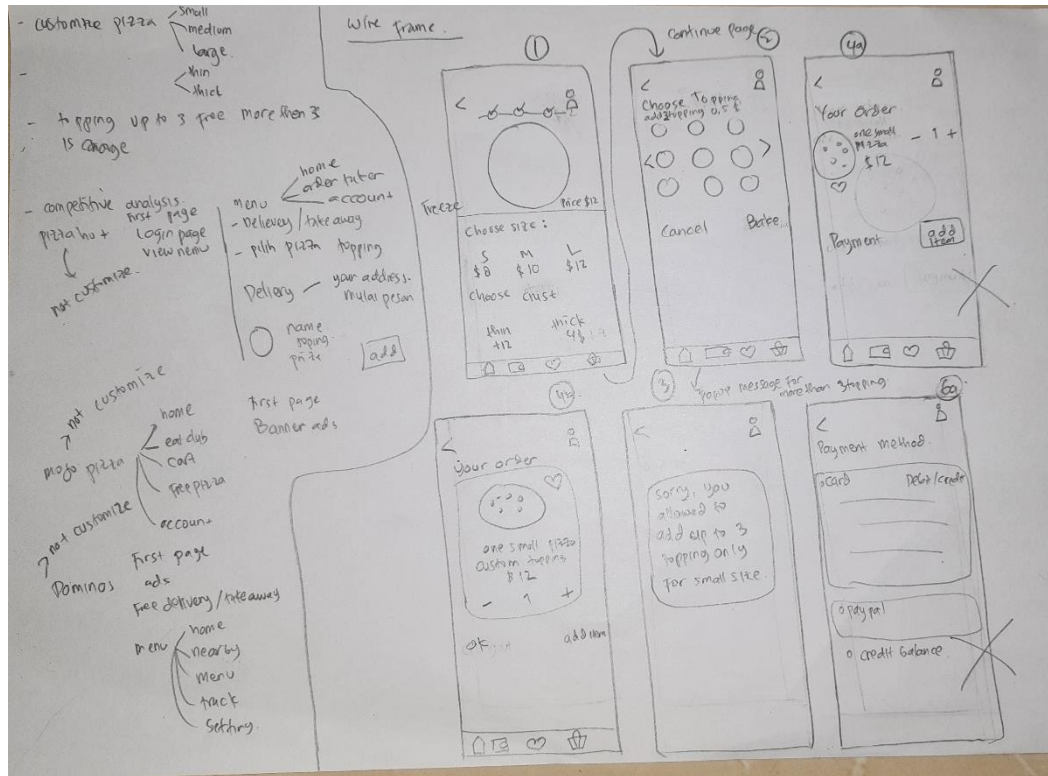 - customize pizza
small
medium
large.
-
thin
thick
- topping up to 3 free more then 3
is charge
- competitive analysis.
pizza hut
first page
Login page
view menu
not customize.
menu
home
account
- Delievery / take away
- pilih pizza topping
Delivery - your address.
mulai pesan
name
toping
prize
add
not customize
mojo pizza
home
eat club
cart
Free pizza
account
first page
Banner ads
not customize
Dominos
First page
ads
Free delivery / take away
menu
home
nearby
menu
track
Setting.
wire frame.
1
<
Freeze
Price $12
Choose size:
S M L
$8 $10 $12
choose
thin thick
continue page
2
<
Choose Topping
topping 0,5 $
< >
Cancel Bake
4a
<
Your Order
one small
pizza
$12
- 1 +
Payment
add
item
4b
<
your order
one small pizza
custom topping
$12
- 1 +
ok add item
3
popup message for
more than 3 topping.
<
sorry, you
allowed to
add up to 3
topping only
for small size.
6a
<
Payment method.
card Debit/credit
paypal
credit balance